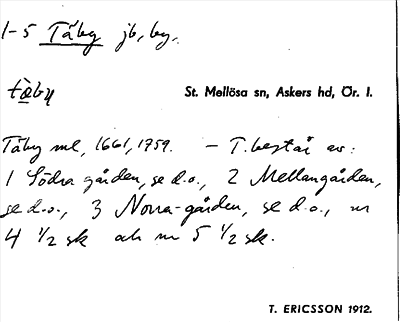 1-5 Täby jb, by.
tä̀by
St. Mellösa sn, Askers hd, Ör. l.
Täby ml, 1661, 1759. – T. består av:
1 Södra gården, se d.o., 2 Mellangården,
se d.o., 3 Norra-gården, se d.o., nr
4 1/2 sk och nr 5 1/2 sk.
T. ERICSSON 1912.